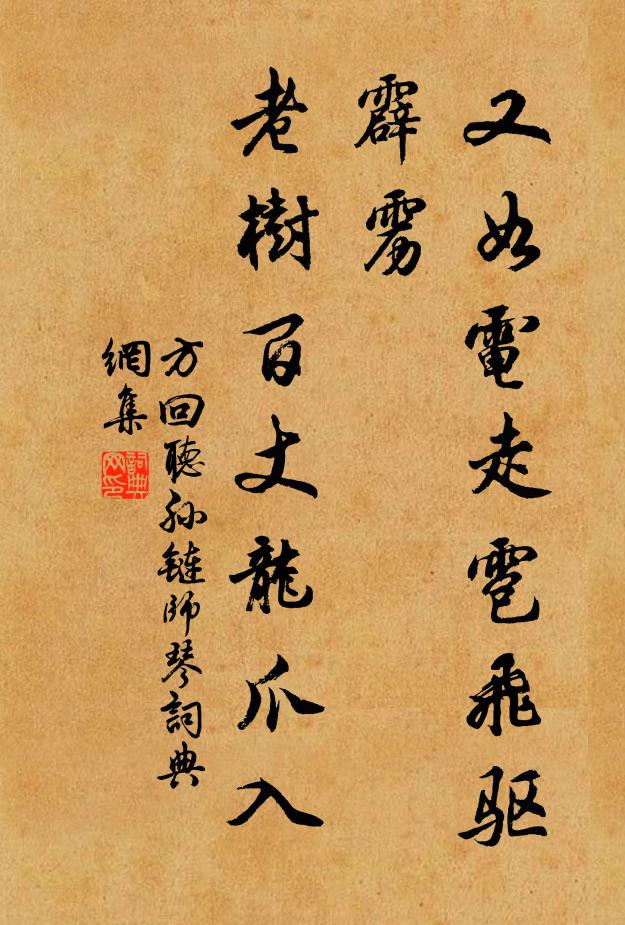 又如電走雹飛驱
霹雳
老樹百丈龍爪入
方回聽孙鏈師琴詞典
網集
詞典
网印